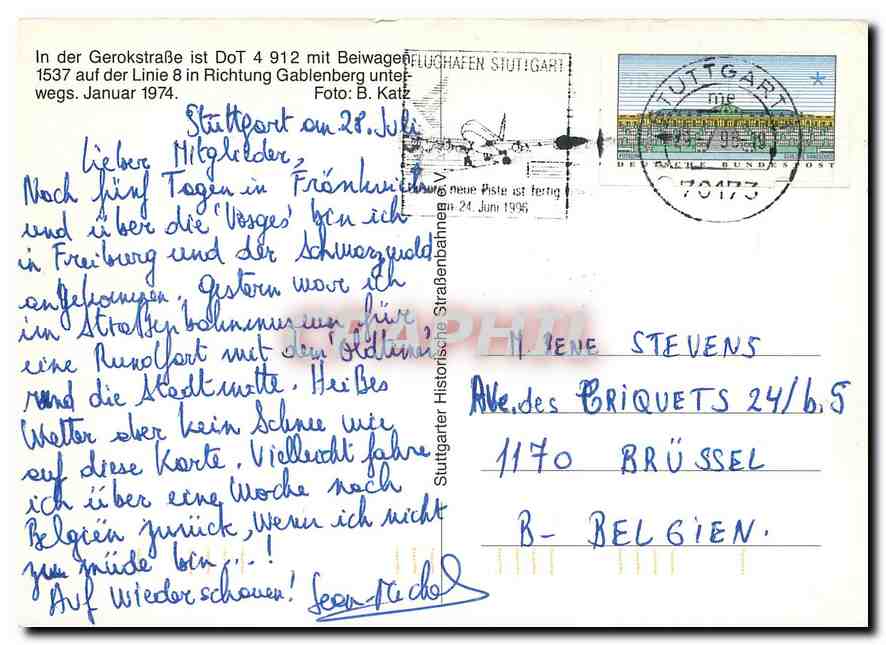 In der Gerokstraße ist DoT 4 912 mit Beiwagen
1537 auf der Linie 8 in Richtung Gablenberg unter-
wegs. Januar 1974. Foto: B. Katz
Stuttgart am 28. Juli
Lieber Mitglieder,
Nach fünf Tagen in Fränkreich
und über die 'Vosges' bin ich
in Freiburg und der Schwarzwald
angekommen. Gestern war ich
im Straßenbahnmuseum für
eine Rundfart mit dem 'Oldtimer'
rund die Stadtmitte. Heißes
Wetter aber kein Schnee wie
auf diese Karte. Vielleicht fahre
ich über eine Woche nach
Belgiën zurück, Wenn ich nicht
zu müde bin...!
Auf Wiederschauen! Jean-Michel
Stuttgarter Historische Straßenbahnen e.V.
FLUGHAFEN STUTTGART
Unsere neue Piste ist fertig
am 24. Juni 1996
STUTTGART
me
70173
DEUTSCHE BUNDESPOST
CPAPHIL
M. RENE STEVENS
Ave. des CRIQUETS 24/b.5
1170 BRÜSSEL
B- BELGIEN.